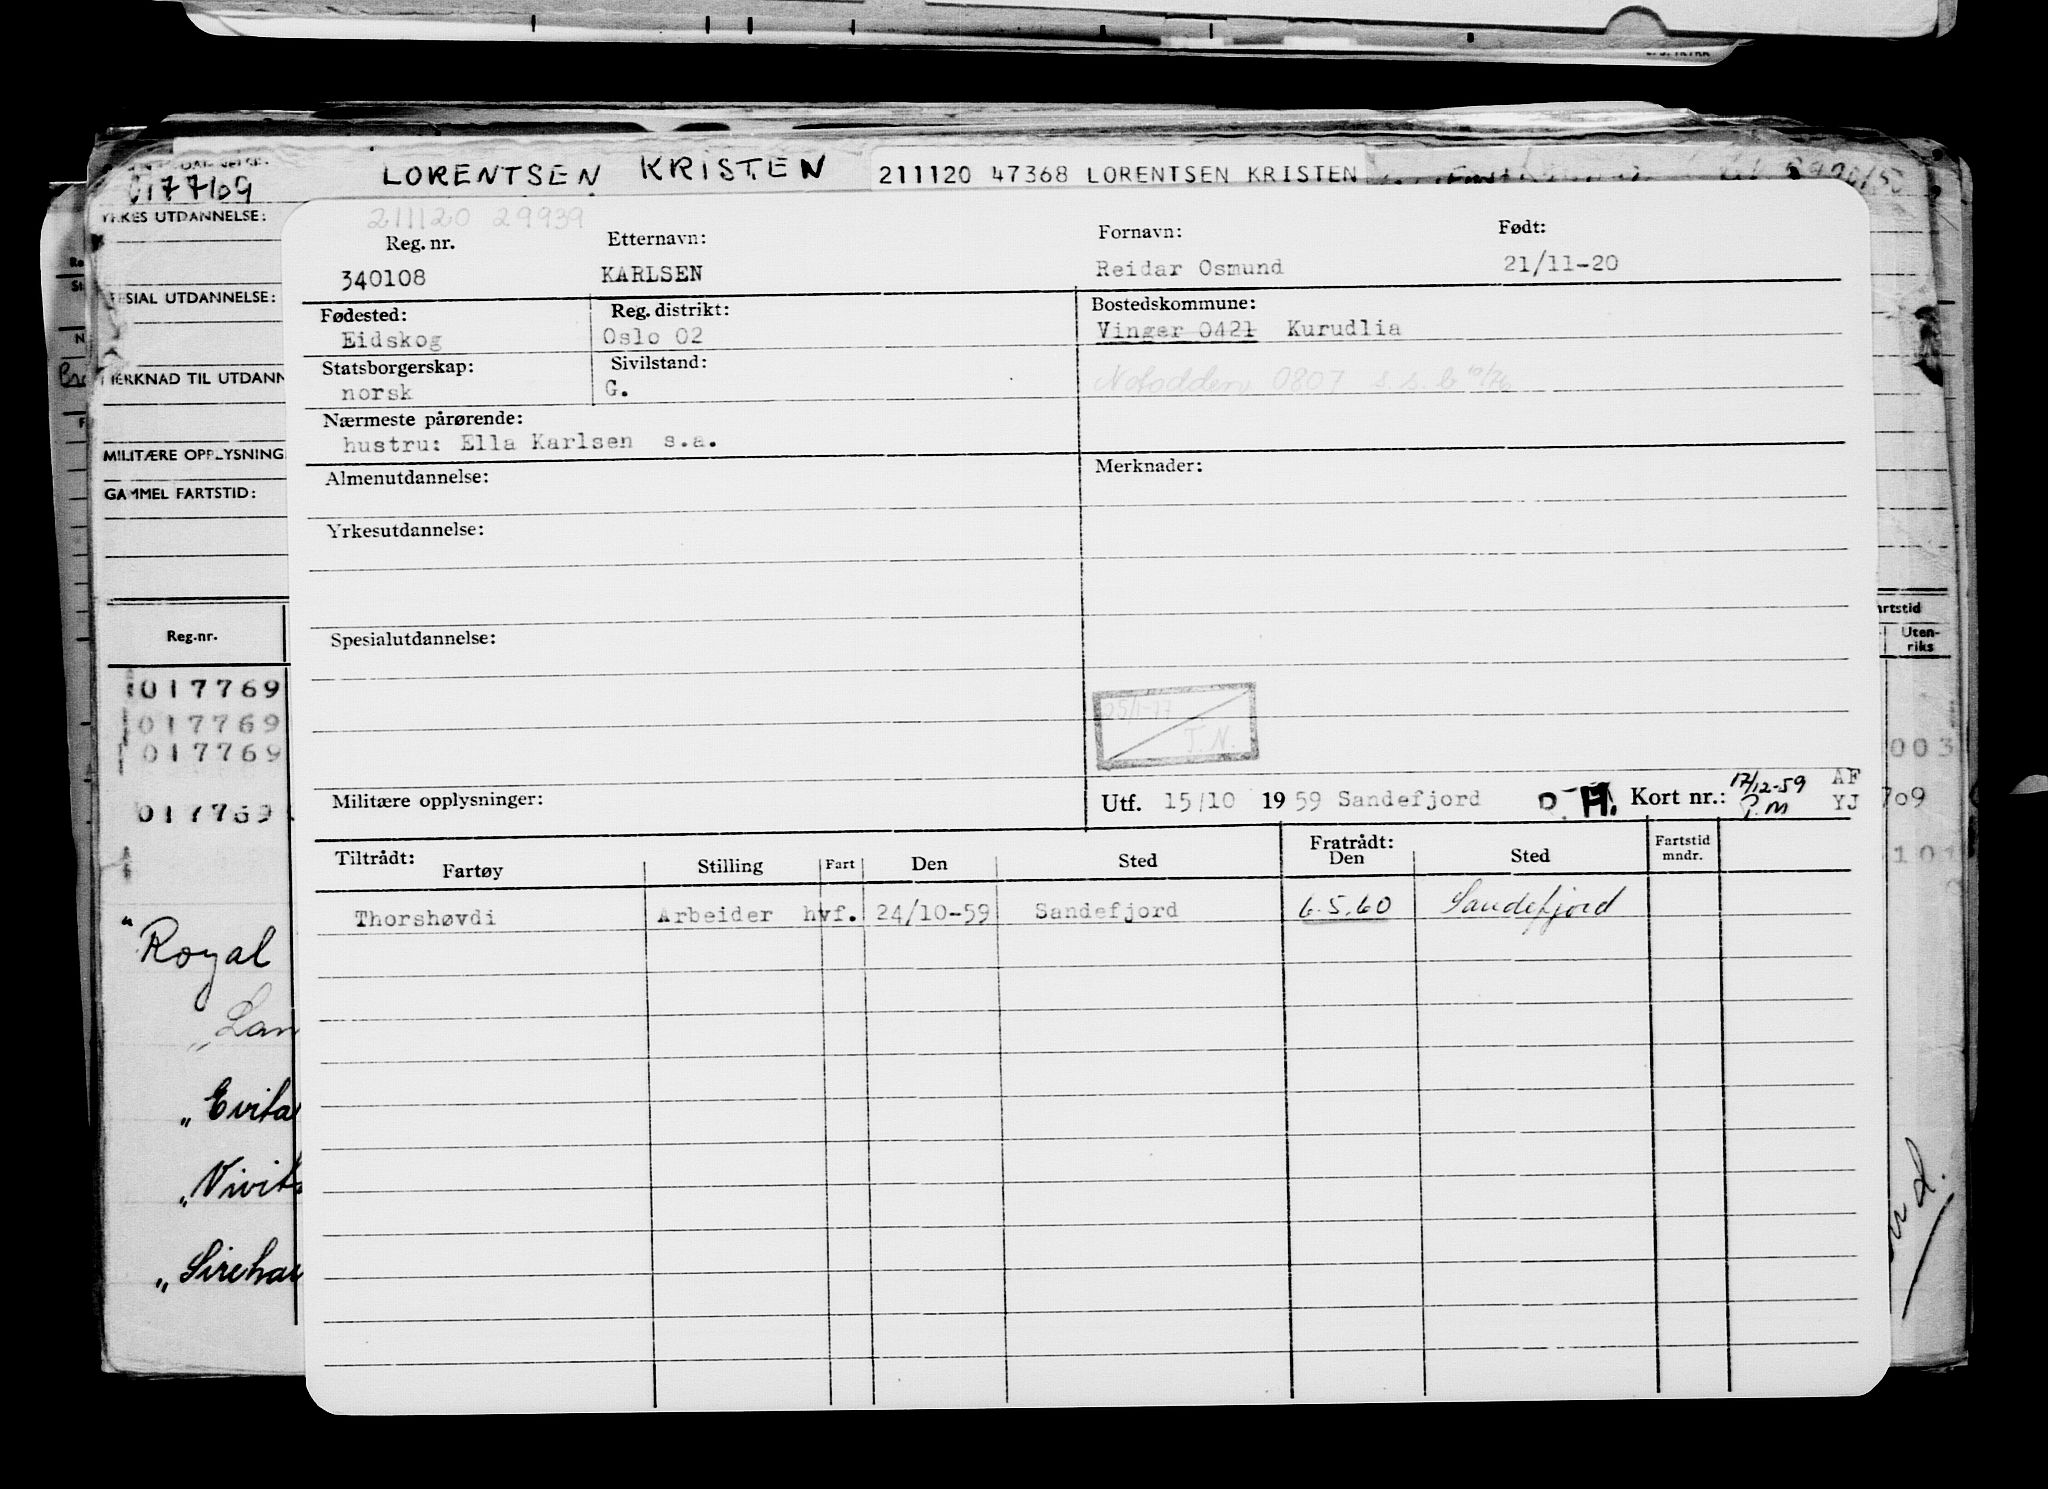 017769
LORENTSEN KRISTEN
211120 47368 LORENTSEN KRISTEN
YRKES UTDANNELSE:
SIAL UTDANNELSE:
MERKNAD TIL UTDANN
MILITÆRE OPPLYSNING
GAMMEL FARTSTID:
Reg.nr.
017769
017769
017769
017769
"Royal
"Lan
"Evita
"Vivit
"Sireha
211120 29939
Reg. nr. Etternavn: Fornavn: Født:
340108 KARLSEN Reidar Osmund 21/11-20
Fødested: Reg. distrikt: Bostedskommune:
Eidskog Oslo 02 Vinger 0421 Kurudlia
Statsborgerskap: Sivilstand:
norsk G. Notodden 0807 s.s.b 10/76
Nærmeste pårørende:
hustru: Ella Karlsen s.a.
Almenutdannelse: Merknader:
Yrkesutdannelse:
Spesialutdannelse:
25/1-77
T.N.
Militære opplysninger: Utf. 15/10 1959 Sandefjord D.H. Kort nr.: 17/12-59 AF
P.M YJ
Tiltrådt: Fratrådt:
Fartøy Stilling Fart Den Sted Den Sted Fartstid mndr.
Thorshøvdi Arbeider hvf. 24/10-59 Sandefjord 6.5.60 Sandefjord
artstid
Uten-
riks
003
709
101